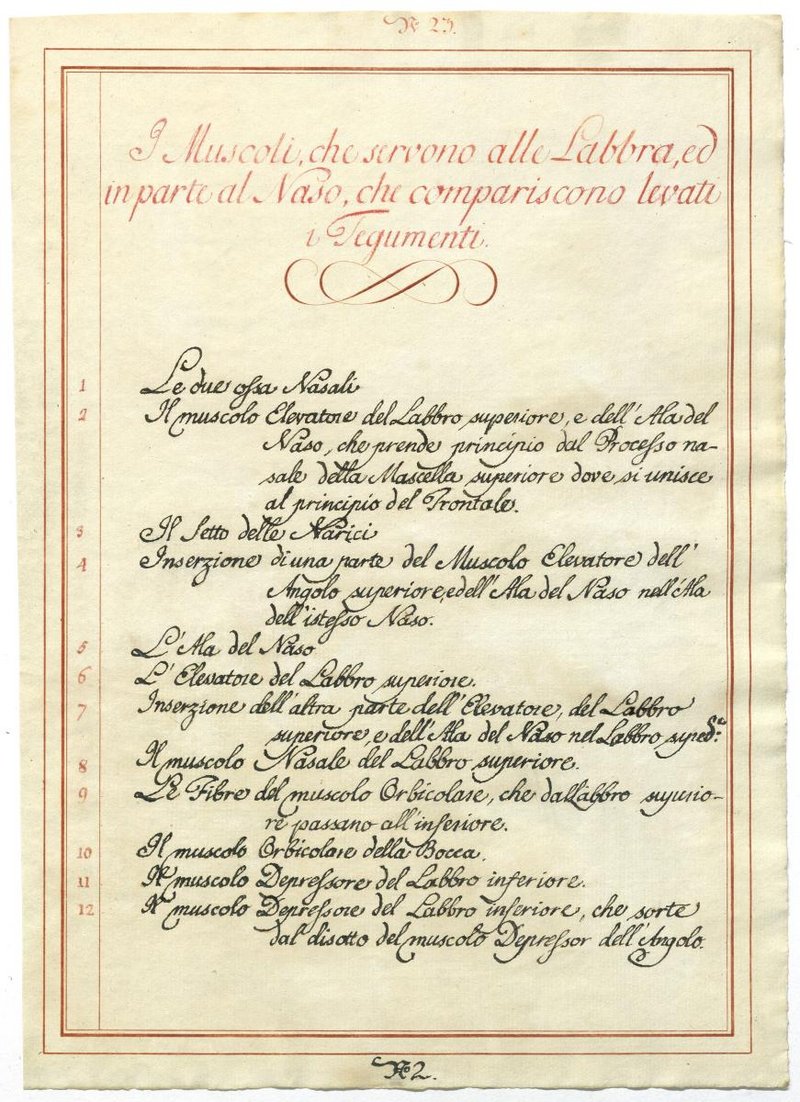 No. 23.
I Muscoli, che servono alle Labbra, ed
in parte al Naso, che compariscono levati
i Tegumenti.
1 Le due ossa Nasali
2 Il muscolo Elevatore del Labbro superiore, e dell'Ala del
Naso, che prende principio dal Processo na-
sale della Mascella superiore dove si unisce
al principio del Frontale.
3 Il Setto delle Narici
4 Inserzione di una parte del Muscolo Elevatore dell'
Angolo superiore, e dell'Ala del Naso nell'Ala
dell'istesso Naso.
5 L'Ala del Naso
6 L'Elevatore del Labbro superiore.
7 Inserzione dell'altra parte dell'Elevatore, del Labbro
superiore e dell'Ala del Naso nel Labbro
8 Il muscolo Nasale del Labbro superiore.
9 Le Fibre del muscolo Orbicolare, che dal Labbro superio-
re passano all'inferiore.
10 Il muscolo Orbicolare della Bocca.
11 Il muscolo Depressore del Labbro inferiore.
12 Il muscolo Depressore del Labbro inferiore, che sorte
dal disotto del muscolo Depressor dell'Angolo.
No 2.